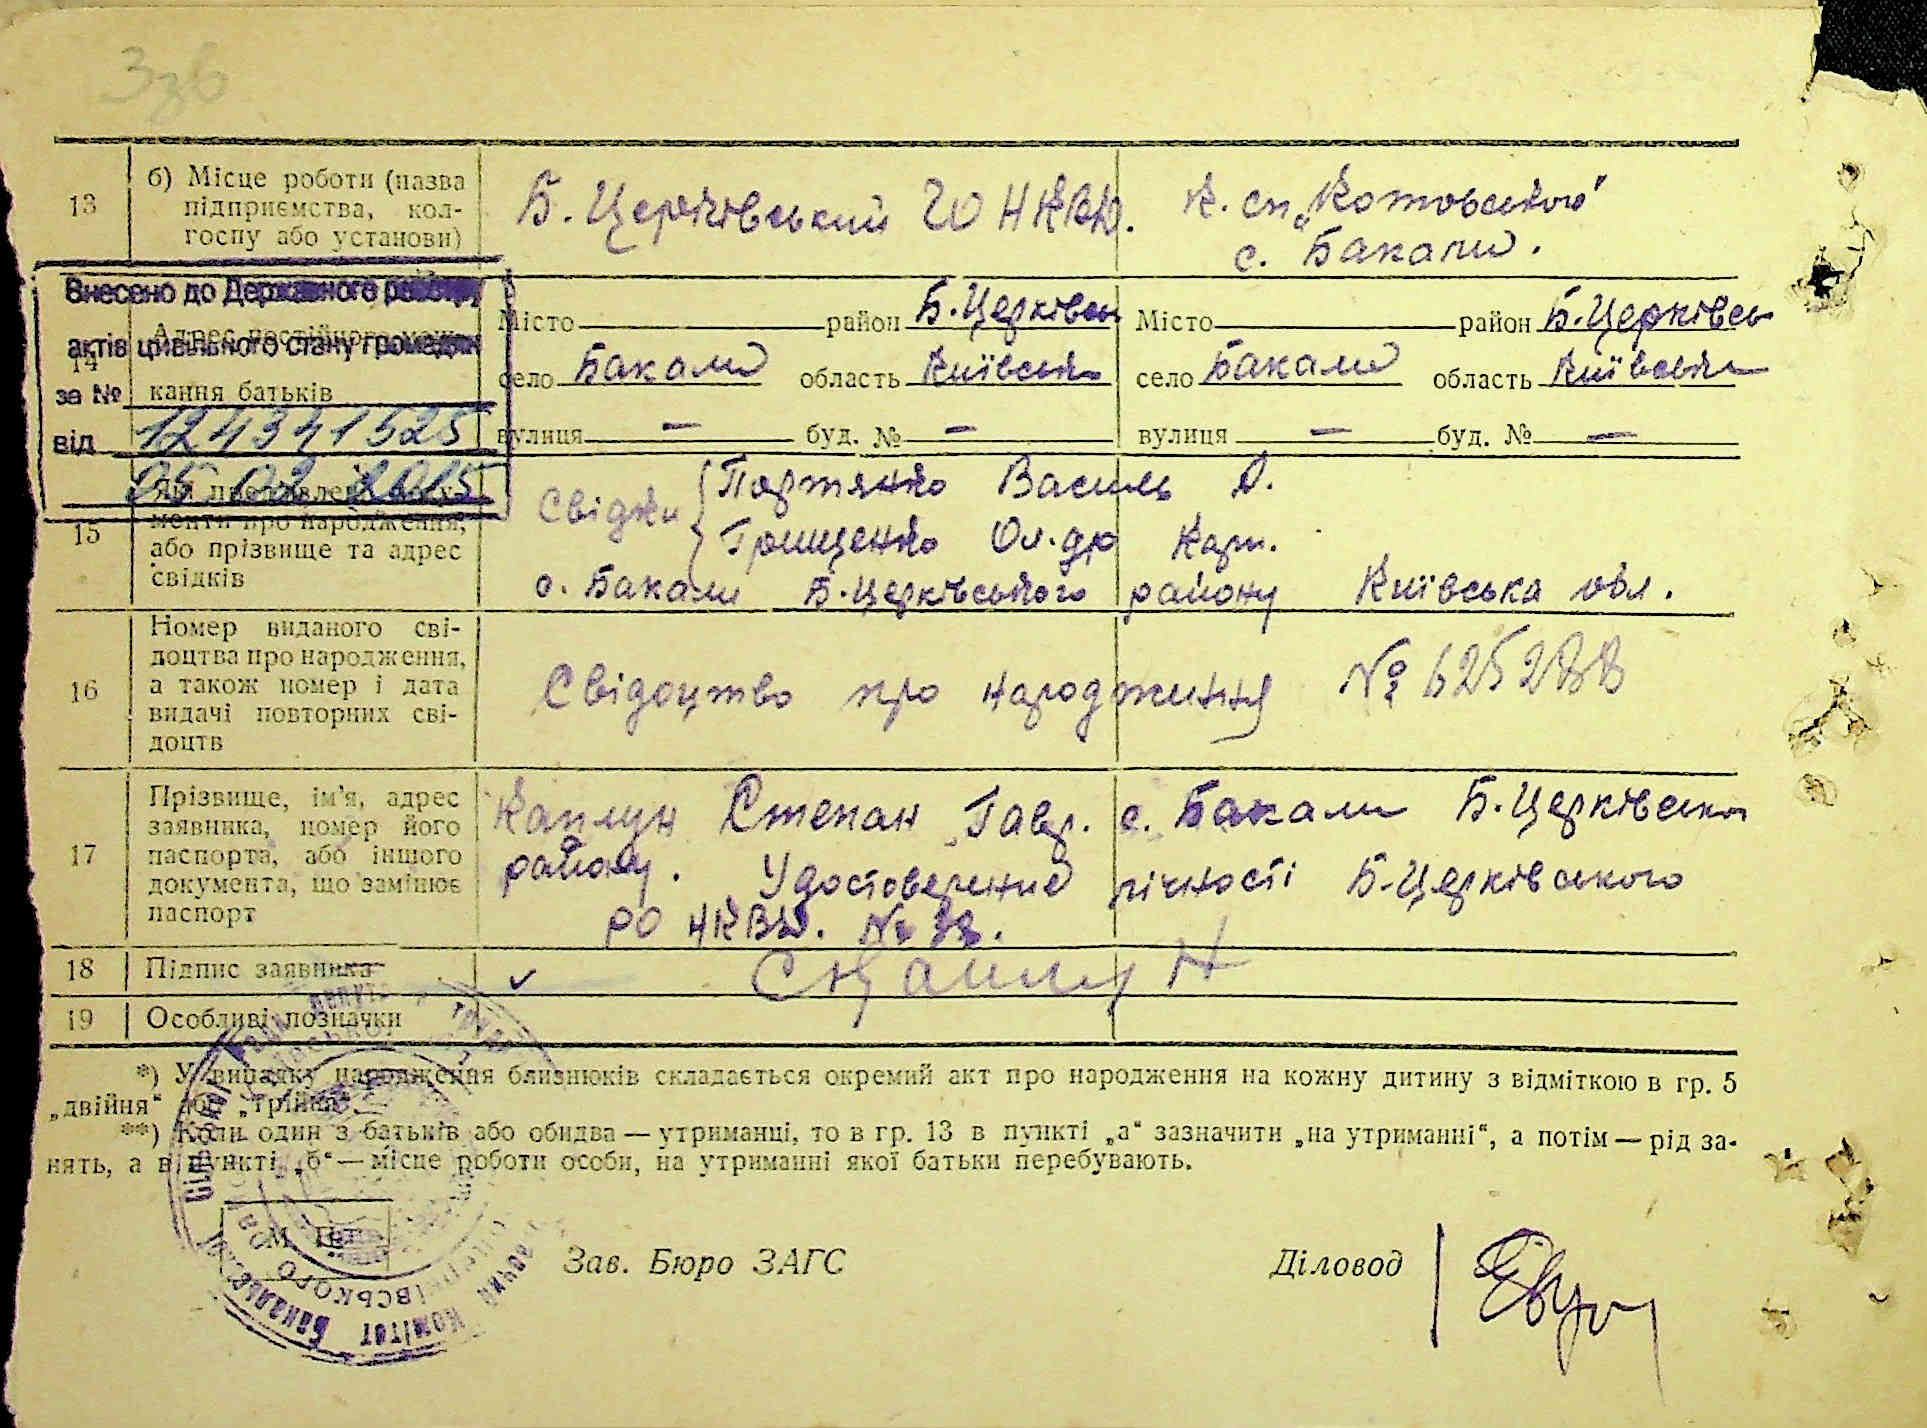 Ззв
13
б) Місце роботи (назва
підприємства, кол-
госпу або установи)
Б. Церківський НКВД.
К. сп „Котовського“
с. Бакали.
Внесено до Державного
актів цивільного стану громадян
за №
від
124341525
05 02 2015
14
Адрес постійного меш-
кання батьків
Місто — район Б.Церківськ
село Бакали область Київськ
вулиця — буд. № —
Місто — район Б.Церківськ
село Бакали область Київськ
вулиця — буд. № —
15
Які пред'явлені доку-
менти про народження,
або прізвище та адрес
свідків
Свідки { Портянко Василь
Грищенко Ол-др Карп.
с. Бакали Б.Церківського району Київська обл.
16
Номер виданого сві-
доцтва про народження,
а також номер і дата
видачі повторних сві-
доцтв
Свідоцтво про народження № 625288
17
Прізвище, ім'я, адрес
заявника, номер його
паспорта, або іншого
документа, що замінює
паспорт
Каплун Степан Гавр. с. Бакали Б.Церківськ
району. Удостоверение лічності Б-Церківського
РО НКВД. №
18
Підпис заявника
Каплун
19
Особливі позначки
*) У випадку народження близнюків складається окремий акт про народження на кожну дитину з відміткою в гр. 5
„двійня“ або „трійня“.
**) Коли один з батьків або обидва — утриманці, то в гр. 13 в пункті „а“ зазначити „на утриманні“, а потім — рід за-
нять, а в пункті „б“ — місце роботи особи, на утриманні якої батьки перебувають.
М.
Зав. Бюро ЗАГС
Діловод